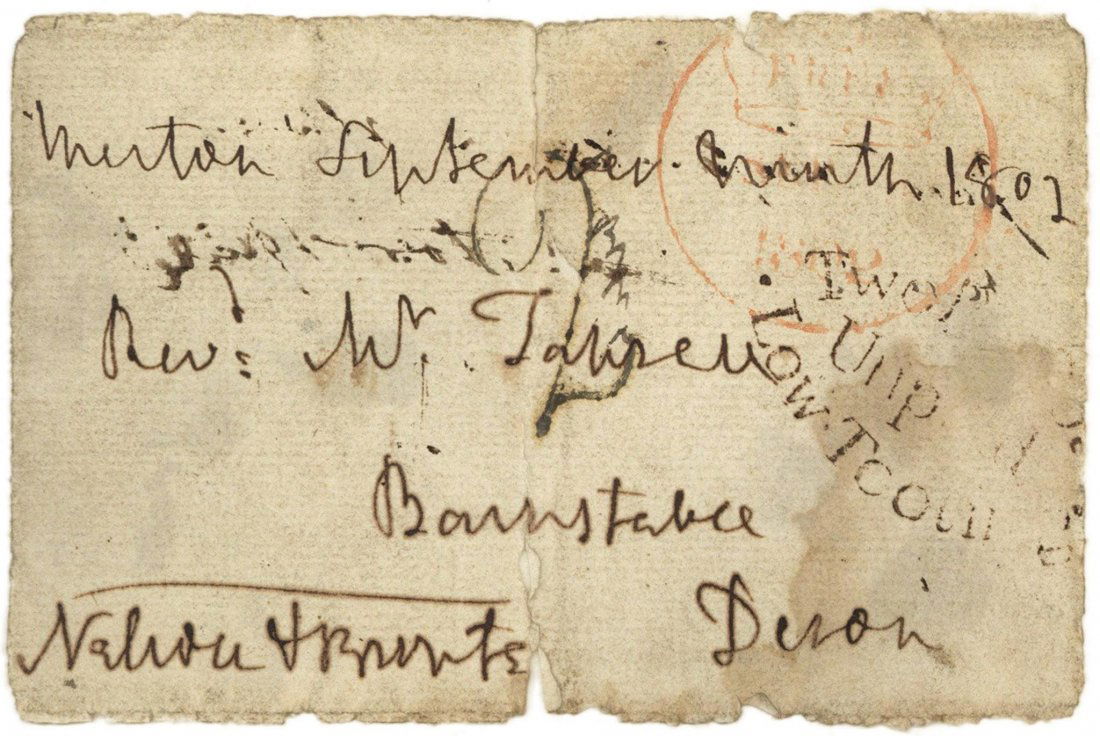 Merton September Ninth. 1802
Revd: Mr. Tahrell
Barnstable
Devon
Nelson & Bronte
Twop
Unp
Low.Tcoun